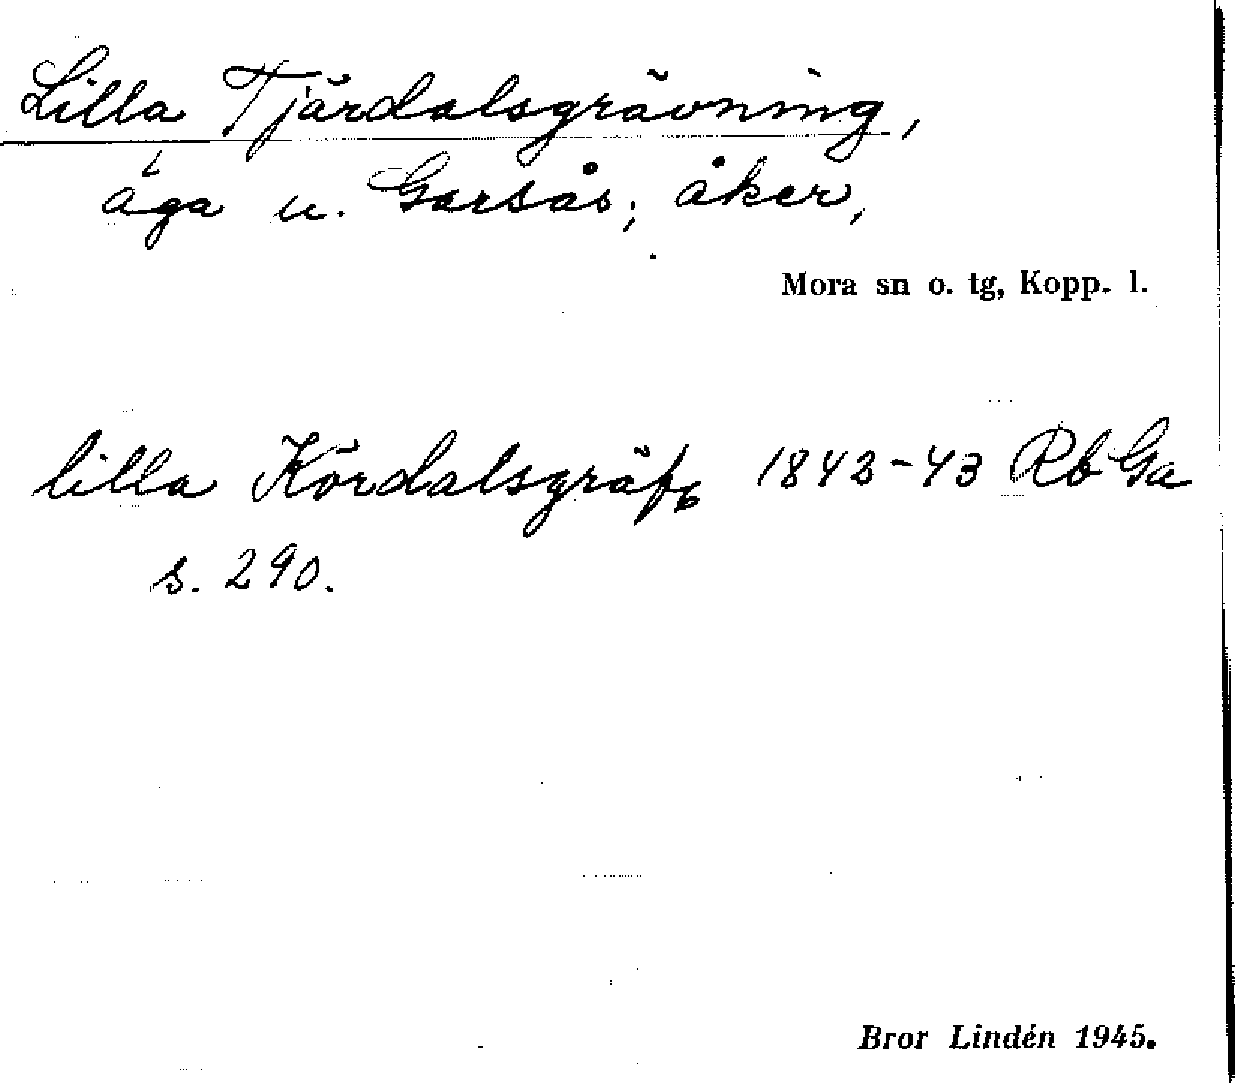 Lilla Tjärdalsgrävning,
äga u. Garsås; åker,
Mora sn o. tg, Kopp. l.
lilla Kördalsgräfn 1842-43 Rb Ga
s. 290.
Bror Lindén 1945.